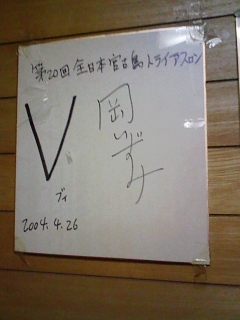 第20回 全日本宮古島トライアスロン
岡いずみ
V
ブイ
2004.4.26